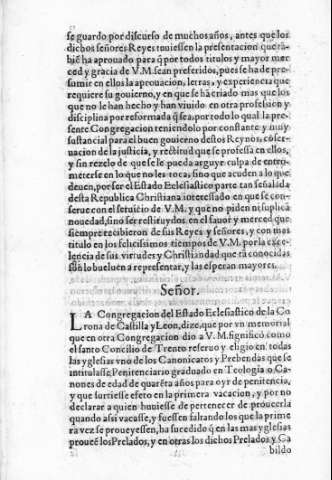 se guardo por discurso de muchos años, antes que los
dichos señores Reyes tuuiessen la presentacion que tã-
bie͂ ha aprouado para q̃ por todos titulos y mayor mer
ced y gracia de V.M. sean preferidos, pues se ha de pre-
sumir en ellos la aprouacion, letras, y experiencia que
requiere su gouierno, y en que se hã criado mas que los
que no le han hecho y han viuido en otra profession y
disciplina por reformada q̃ sea, por todo lo qual la pre-
sente Congregacion teniendolo por constante y muy
sustancial para el buen gouierno destos Reynos, cõser-
uacion de la justicia, y rectitud que se professa en ellos,
y sin rezelo de que se le pueda arguyr culpa de entro-
meterse en lo que no les toca, sino que acuden a lo que
deuen, por ser el Estado Eclesiastico parte tan señalada
desta Republica Christiana interessado en que se con-
serue con el seruicio de V.M. y que no piden ni suplicã
nouedad, sino ser restituydos en el fauor y merced que
siempre recibieron de sus Reyes y señores, y con mas
titulo en los felicissimos tiempos de V.M. por la exce-
lencia de sus virtudes y Christiandad que tã conocidas
sõn lo bueluen a representar, y las esperan mayores.
Señor.
LA Congregacion del Estado Eclesiastico de la Co
rona de Castilla y Leon, dize, que por vn memorial
que en otra Congregacion dio a V.M. significò como
el santo Concilio de Trento reseruo y eligio en todas
las yglesias vno de los Canonicatos y Prebendas que se
intitulasse Penitenciario graduado en Teologia o Ca-
nones de edad de quarẽta años para oyr de penitencia,
y que surtiesse efeto en la primera vacacion, y por no
declarar a quien huuiesse de pertenecer de proueerla
quando assi vacasse, y fuessen faltando los que la prime
ra vez se proueyessen, ha sucedido q̃ en las mas yglesias
proueẽ los Prelados, y en otras los dichos Prelados y Ca
bildo